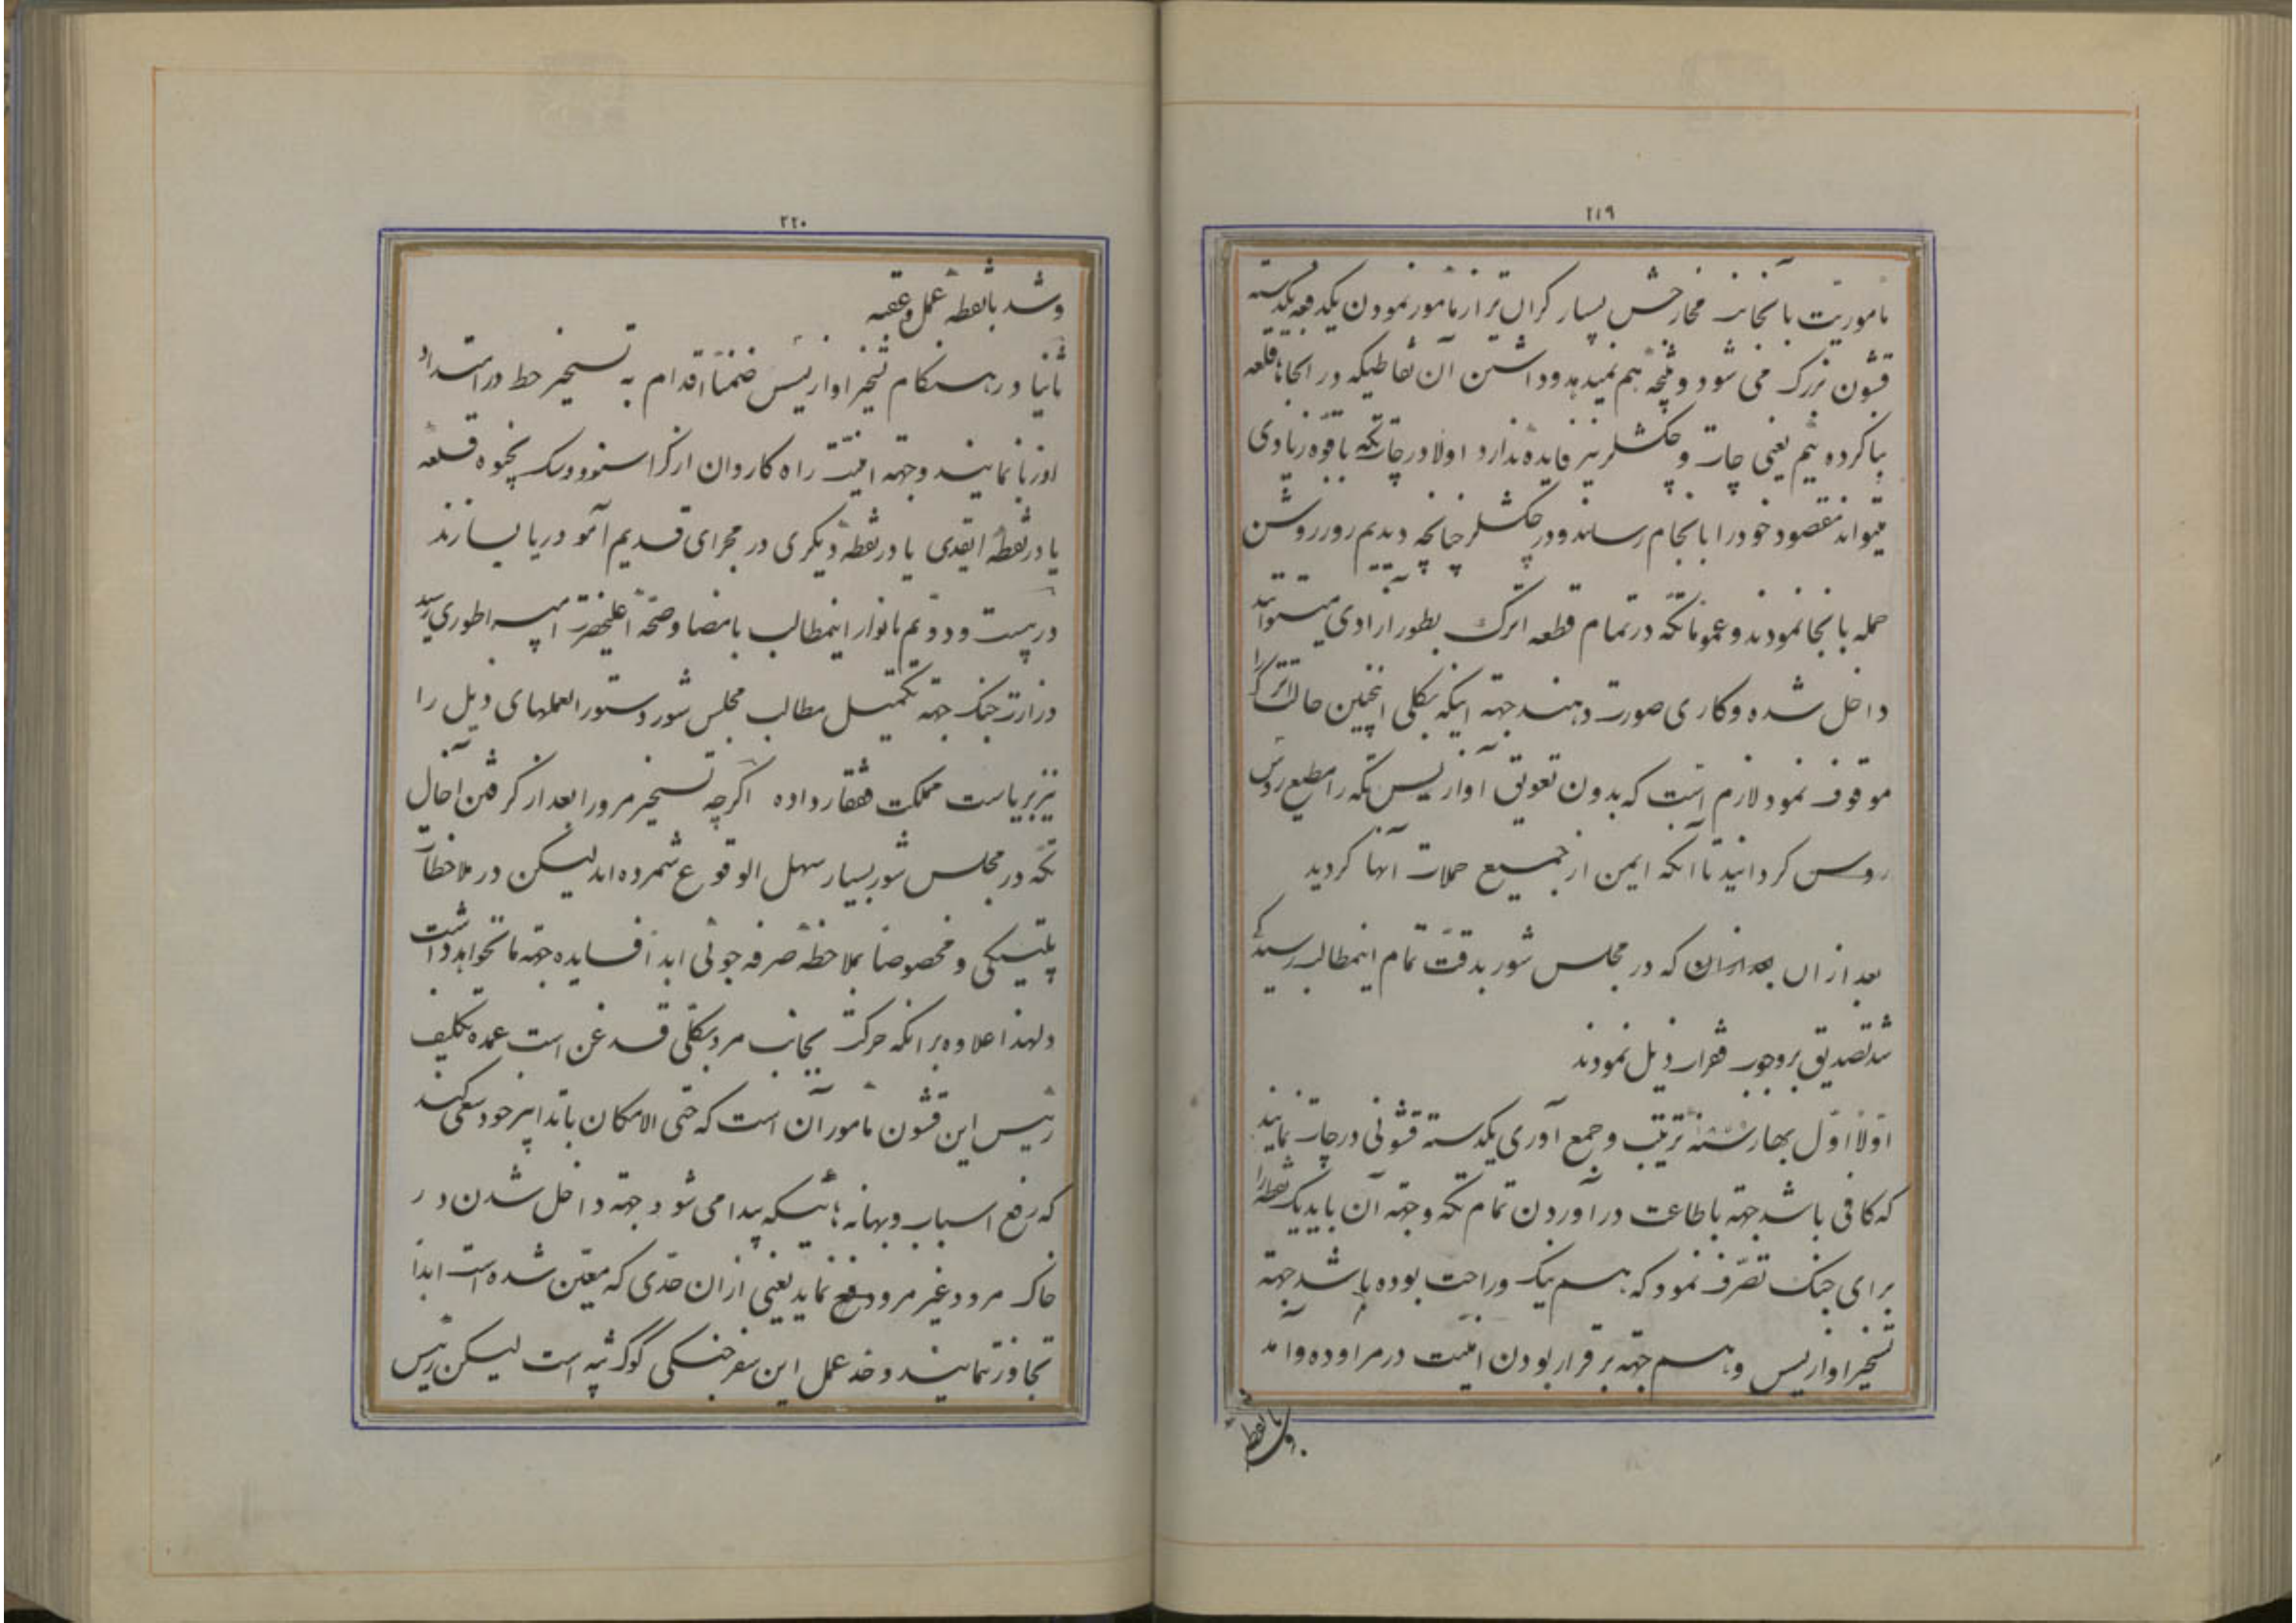 ۲۱۹
ماموریت بآنجانب مخارجش بسیار گران تر از مامور نمودن یکدفعه یکدسته
قشون بزرگ می شود و نتیجه هم نمیدهد و داشتن آن نقاطیکه در آنجاها قلعه
بنا کرده ئیم یعنی چات و چکشلر نیز فایده ندارد اولا در چات تکه با قوه زیادی
میتواند مقصود خود را بانجام رساند و در چکشلر چنانچه دیدیم روز روشن
حمله بآنجا نمودند و عموما تکه در تمام قطعه اترک بطور آزادی میتوانند
داخل شده و کاری صورت دهند جهته اینکه بکلی اینچنین حالت اترک را
موقوف نمود لازم است که بدون تعویق آوازیس تکه را مطیع روس
روس گردانید تا آنکه ایمن از جمیع حملات آنها گردید
بعد از آن که در مجلس شور بدقت تمام اینمطالب رسیدگی
شد تصدیق بر وجوب فقرات ذیل نمودند
اولا اول بهار سنه ترتیب و جمع آوری یکدسته قشونی در چات نمایند
که کافی باشد جهته باطاعت در آوردن تمام تکه و جهته آن باید یک نقطه را
برای جنگ تصرف نمود که هم نیک و راحت بوده باشد جهته
تسخیر اوازیس و هم جهته برقرار بودن امنیت در مراوده و آمد
۲۲۰
و شد با نقطه عمل و عقبه
ثانیا در هنگام تسخیر اوازیس ضمنا اقدام به تسخیر خط در امتداد
اوزبا نمایند و جهته امنیت راه کاروان از کراسنوودسک بخیوه قلعه
یا در نقطه ایقدی یا در نقطه دیگری در مجرای قدیم آمو دریا بسازند
در بیست و دوم مانوار اینمطالب بامضا و صحه اعلیحضرت امپراطوری رسید
وزارت جنگ جهته تکمیل مطالب مجلس شور دستور العملهای ذیل را
نیز بریاست مملکت قفقاز داده اگرچه تسخیر مرو را بعد از گرفتن آخال
تکه در مجلس شور بسیار سهل الوقوع شمرده اند لیکن در ملاحظات
پلتیکی و مخصوصا بملاحظه صرفه جوئی ابدا فایده جهته ما نخواهد داشت
و لهذا علاوه بر آنکه حرکت بجانب مرو بکلی قدغن است عمده تکلیف
رئیس این قشون مامور آن است که حتی الامکان با تدابیر خود سعی کند
که رفع اسباب و بهانه هائیکه پیدا می شود جهته داخل شدن در
خاک مرو و غیر مرو دفع نماید یعنی از آن حدی که معین شده است ابدا
تجاوز ننمایند و حد عمل این سفر جنگی گوک تپه است لیکن رئیس